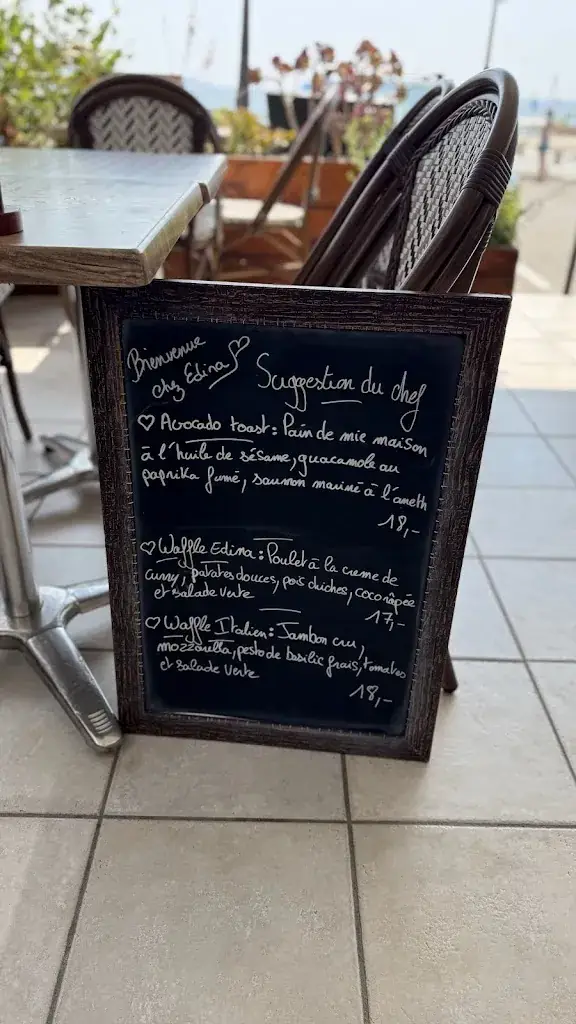 Bienvenue
chez Edina
Suggestion du chef
Avocado toast: Pain de mie maison
à l'huile de sésame, guacamole au
paprika fumé, saumon mariné à l'aneth
18,-
Waffle Edina: Poulet à la creme de
curry, patates douces, pois chiches, coco râpée
et salade verte
17,-
Waffle Italien: Jambon cru,
mozzarella, pesto de basilic frais, tomates
et salade verte
18,-